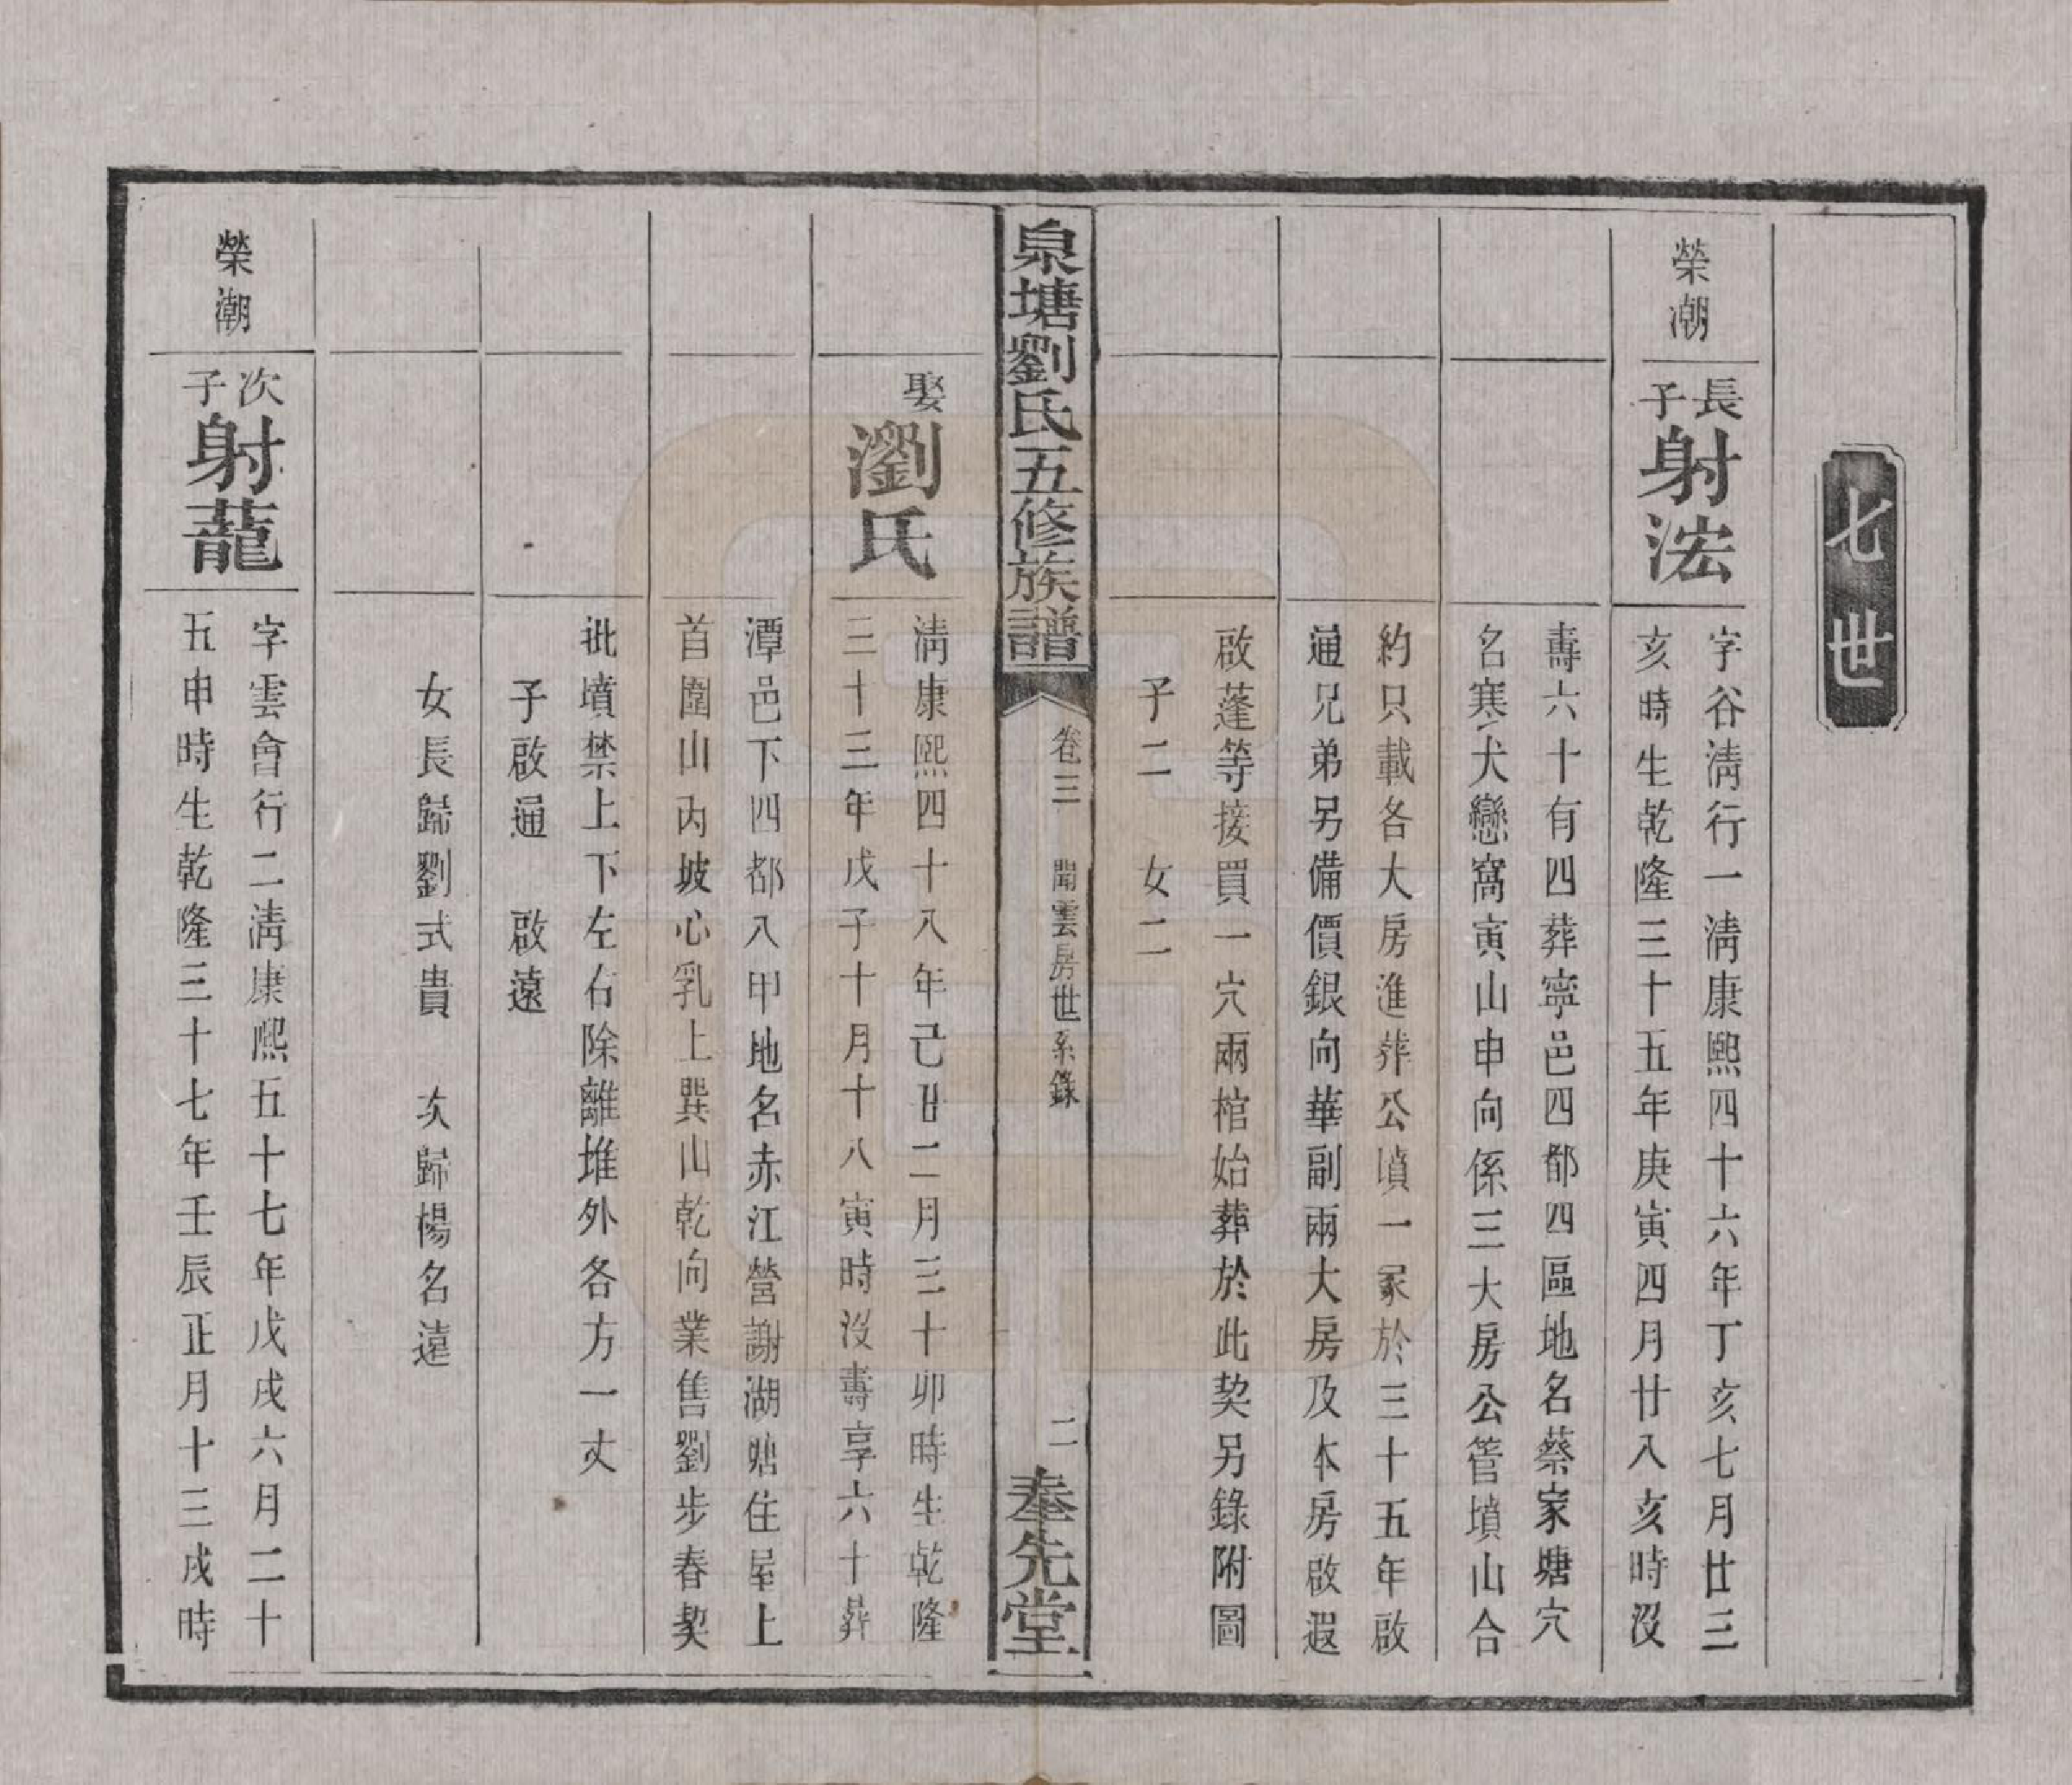 七世
榮潮
長子射浤
字谷淸行一淸康熙四十六年丁亥七月廿三
亥時生乾隆三十五年庚寅四月廿八亥時沒
壽六十有四葬寧邑四都四區地名蔡家塘穴
名寒犬戀窩寅山申向係三大房公管墳山合
約只載各大房進葬公墳一冢於三十五年啟
通兄弟另備價銀向華副兩大房及本房啟遐
啟蓬等接買一穴兩棺始葬於此契另錄附圖
子二 女二
泉塘劉氏五修族譜
卷三 聞雲房世系錄 二
奉先堂
娶瀏氏
淸康熙四十八年己丑二月三十卯時生乾隆
三十三年戊子十月十八寅時沒壽享六十葬
潭邑下四都八甲地名赤江營謝湖塘住屋上
首圍山內坡心乳上巽山乾向業售劉步春契
批墳禁上下左右除離堆外各方一丈
子啟通 啟遠
女長歸劉式貴 次歸楊名遠
榮潮
次子射蘢
字雲會行二淸康熙五十七年戊戌六月二十
五申時生乾隆三十七年壬辰正月十三戌時